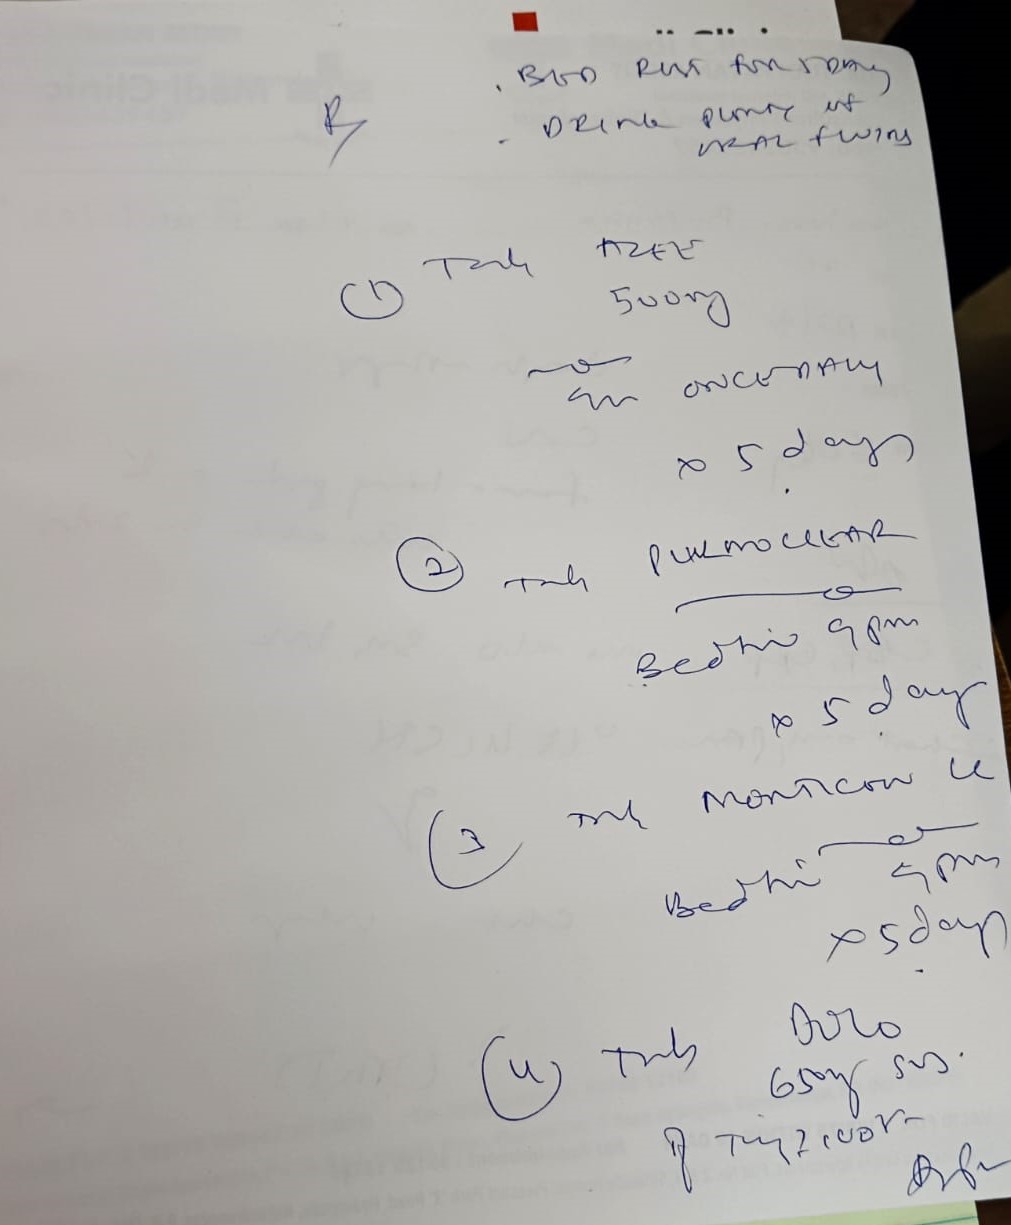 . BED REST FOR 5 DAY
Rx
- DRINK PLENTY of
ORAL FLUIDS
① Tab AZEE
500mg
ONCE DAILY
x 5 days
② Tab PULMOCLEAR
Bedtime 9pm
x 5 days
③ Tab MONTICOPE LC
Bedtime 9pm
x 5 days
④ Tab DOLO
650mg SOS.
if Temp > 100F